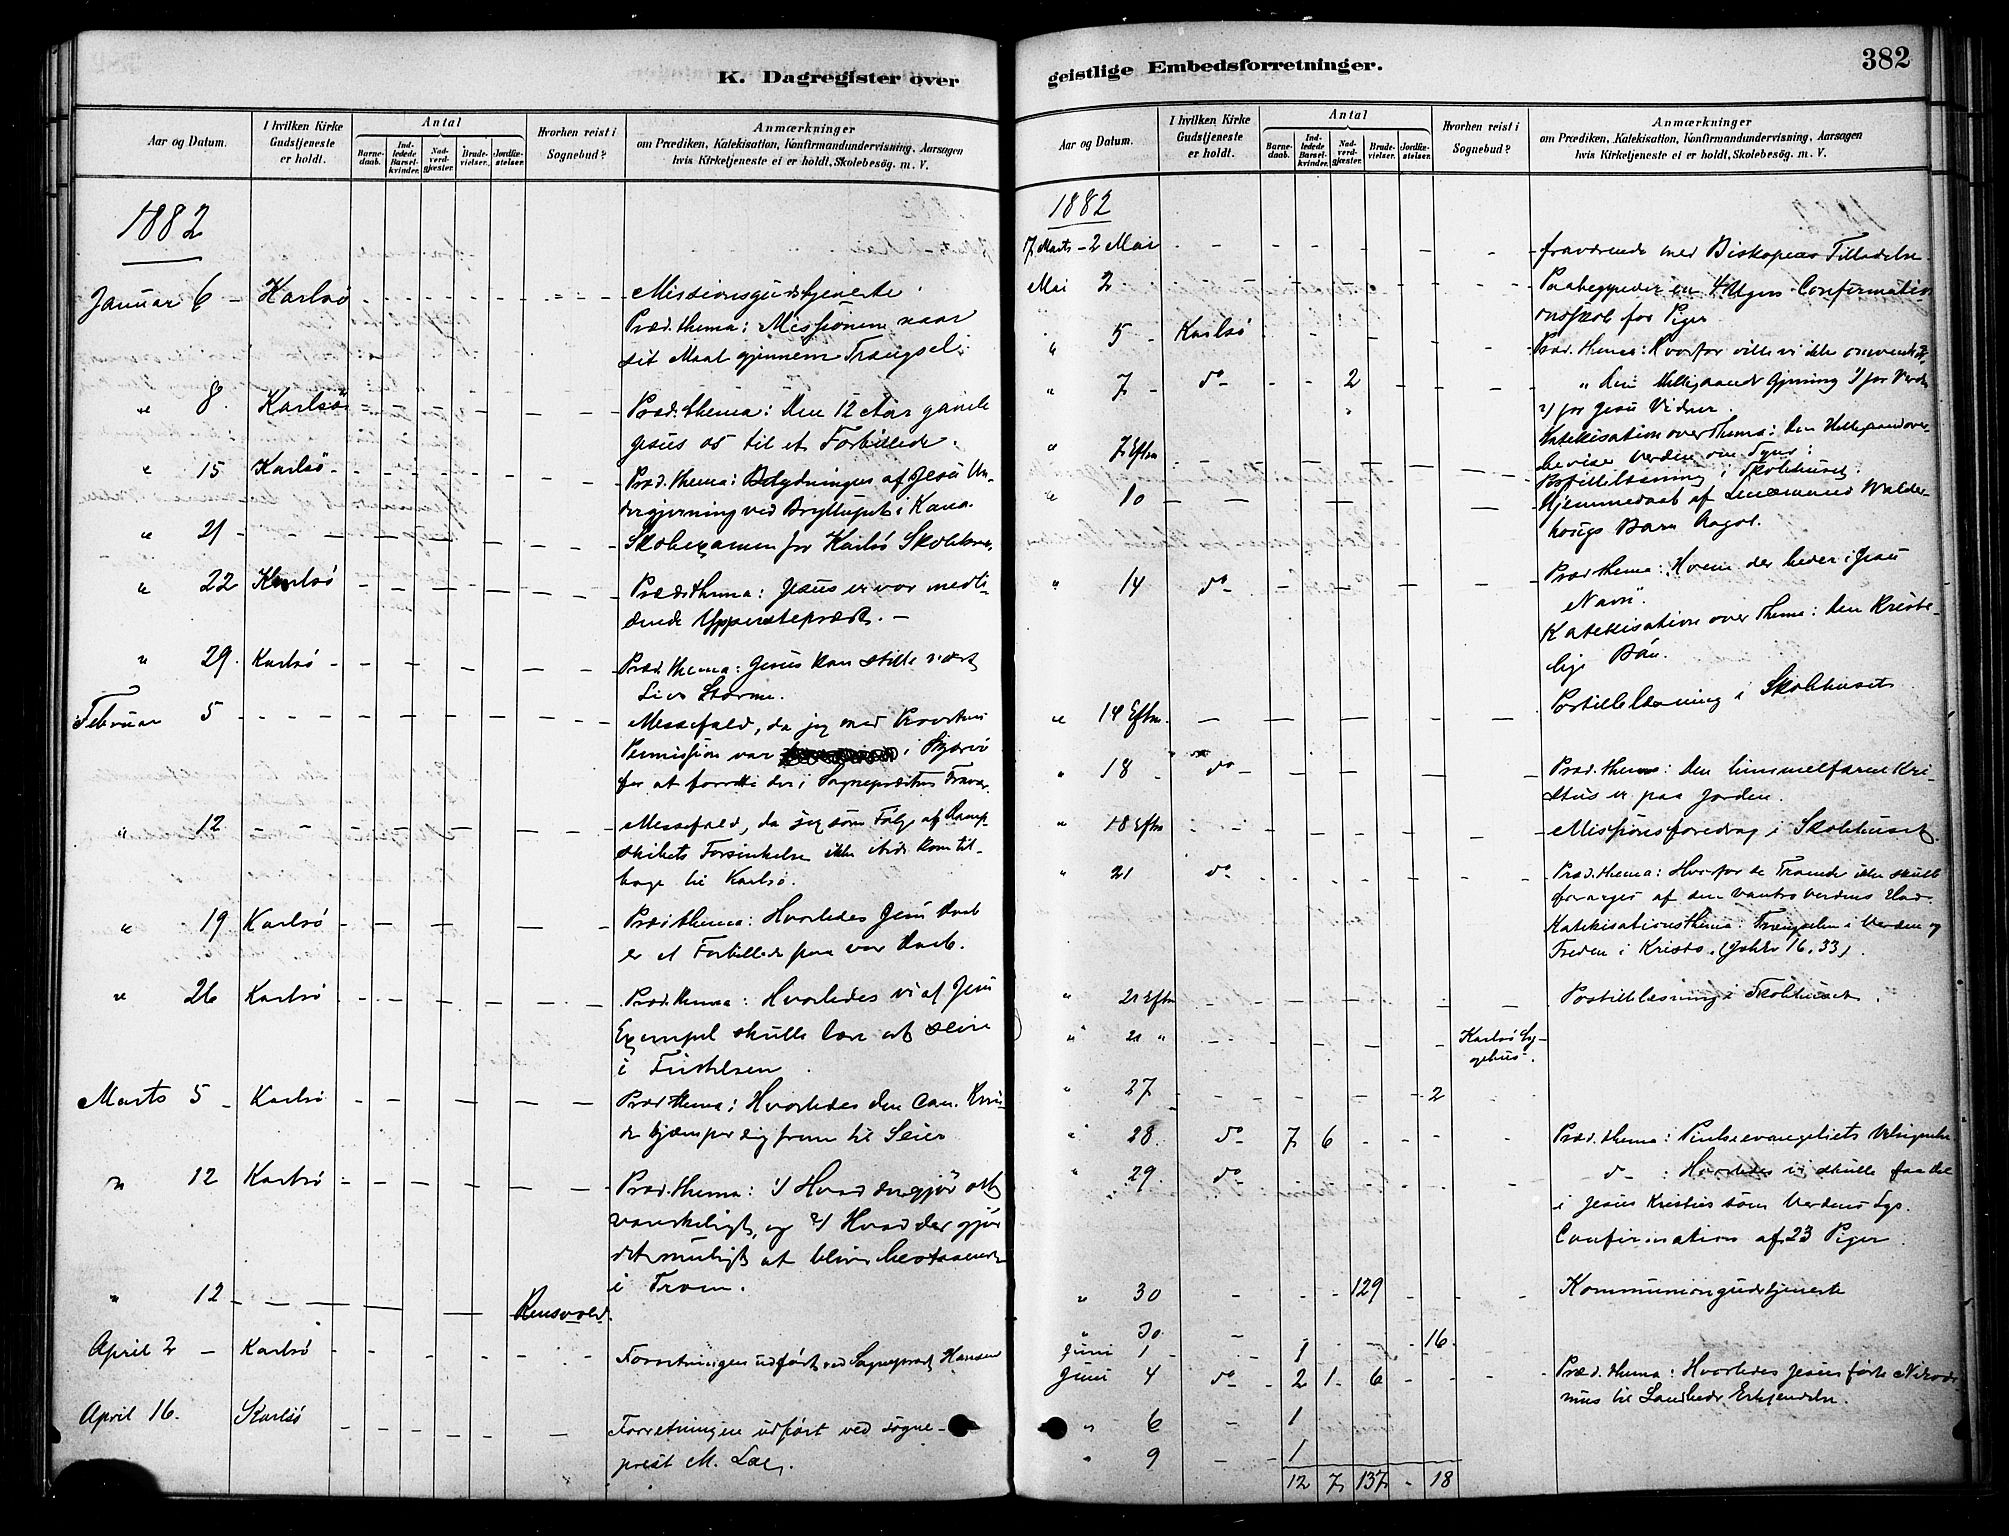 K. Dagregister over
geistlige Embedsforretninger.
382
Aar og Datum.
I hvilken Kirke
Gudstjeneste
er holdt.
Antal
Barne-
daab.
Ind-
ledede
Barsel-
kvinder.
Nad-
verd-
gjæster.
Brude-
vielser.
Jordfæ-
stelser.
Hvorhen reist i
Sognebud?
Anmærkninger
om Prædiken, Katekisation, Konfirmandundervisning, Aarsagen
hvis Kirketjeneste ei er holdt, Skolebesög. m. V.
1882
Januar 6 - Karlsö Missionsgudstjeneste.
Præd. thema: Missionen naar
sit Maal gjennem Trængsel.
" 8. Karlsö Præd. thema: Den 12 Aar gamle
Jesus os til et Forbillede.
" 15 Karlsö - Præd. thema: Betydningen af Jesu Un-
dergjerning ved Bryllupet i Kana.
" 21 - Skoleexamen for Karlsö Skolekreds
" 22 Karlsö Præd. thema: Jesus er vor medli-
dende Ypperstepræst. -
" 29. Karlsö - Præd. thema: Jesus kan stille vort
Livs Storme.
Februar 5 Messefald, da jeg med Provstens
Permission var i Skjærvö
for at forrette der i Sognepræstens Fravær.
" 12 Messefald, da jeg som Følge af Damp-
skibets Forsinkelse ikke kom til-
bage til Karlsö.
" 19 Karlsö Præd. thema: Hvorledes Jesu Daab
er et Forbillede paa vor Daab.
" 26 Karlsö Præd. thema: Hvorledes vi af Jesu
Exempel skulle lære at seire
i Fristelsen.
Marts 5 - Karlsö Præd. thema: Hvorledes den Can. Kvin-
de kjæmper sig frem til Seier
" 12 Karlsö Præd. thema: 1/ Hvad der gjör det
vanskeligt, og 2/ Hvad der gjör
det muligt at blive bestaaende
i Troen.
" 12 Rensvold.
April 2 - Karlsö Forretningen udfört ved Sogneprest Hansen
April 16. Karlsö Forretningen udfört ved sogne-
prest M.
Aar og Datum.
I hvilken Kirke
Gudstjeneste
er holdt.
Antal
Barne-
daab.
Ind-
ledede
Barsel-
kvinder.
Nad-
verd-
gjæster.
Brude-
vielser.
Jordfæ-
stelser.
Hvorhen reist i
Sognebud?
Anmærkninger
om Prædiken, Katekisation, Konfirmandundervisning, Aarsagen
hvis Kirketjeneste ei er holdt, Skolebesög. m. V.
1882
17 Marts - 2 Mai fraværende med Biskopens Tilladelse
Mai 2 Paabegynder en 4 Ugers Confirmati-
onsskole for Piger
" 5 - Karlsö Præd. thema: Hvorfor ville vi ikke omvende
" 7 - do 2 " Den Helligaands Gjerning 1/ for Verden
2/ for Jesu Vidner.
" 7 Eftm Katekisation over Thema: Den Helligaand over-
bevise Verden om Synd.
Postillelæsning i Skolehuset.
" 10 Hjemmedaab af Lensmand Walder-
hougs Barn Aagot.
" 14 do Præd thema: Hvem der beder i Jesu
Navn.
Katekisation over Thema: Den Kriste-
lige Bön.
" 14 Eftm. Postillelæsning i Skolehuset
" 18 - do Præd. thema: Den himmelfarne Kri-
stus er paa Jorden.
" 18 Eftm Missionsforedrag i Skolehuset
" 21 do Præd. thema: Hvorfor de Troende ikke skulle
forarges af den vantro Verdens Had.
Katekisationsthema: Trængselen i Verden og
Freden i Kristo. (Johs 16,33).
" 21 Eftm Postillelæsning i Skolehuset.
" 21 " Karlsö Sy-
gehus.
" 27 2
" 28. do 7 6 Præd. thema: Pintseevangeliets Velsignelse
" 29. do do : Hvorledes vi skulle faa del
i Jesus Kristus som Verdens Lys.
Confirmation af 23 Piger
" 30 129 Kommuniongudstjeneste
" 30. 16
Juni 1 1
Juni 4 do 2 1 6 Præd. thema: Hvorledes Jesus förte Nikode-
mus til Sandheds Erkjendelse.
" 6 1
" 9 1
12 7 137 - 18